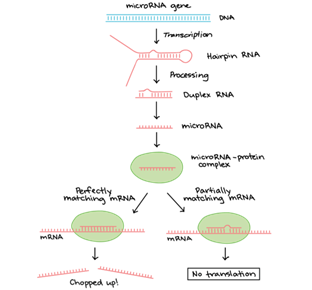 microRNA gene
DNA
Transcription
Hairpin RNA
Processing
Duplex RNA
microRNA
microRNA-protein
complex
Perfectly
matching mRNA
Partially
matching mRNA
mRNA
mRNA
Chopped up!
No translation